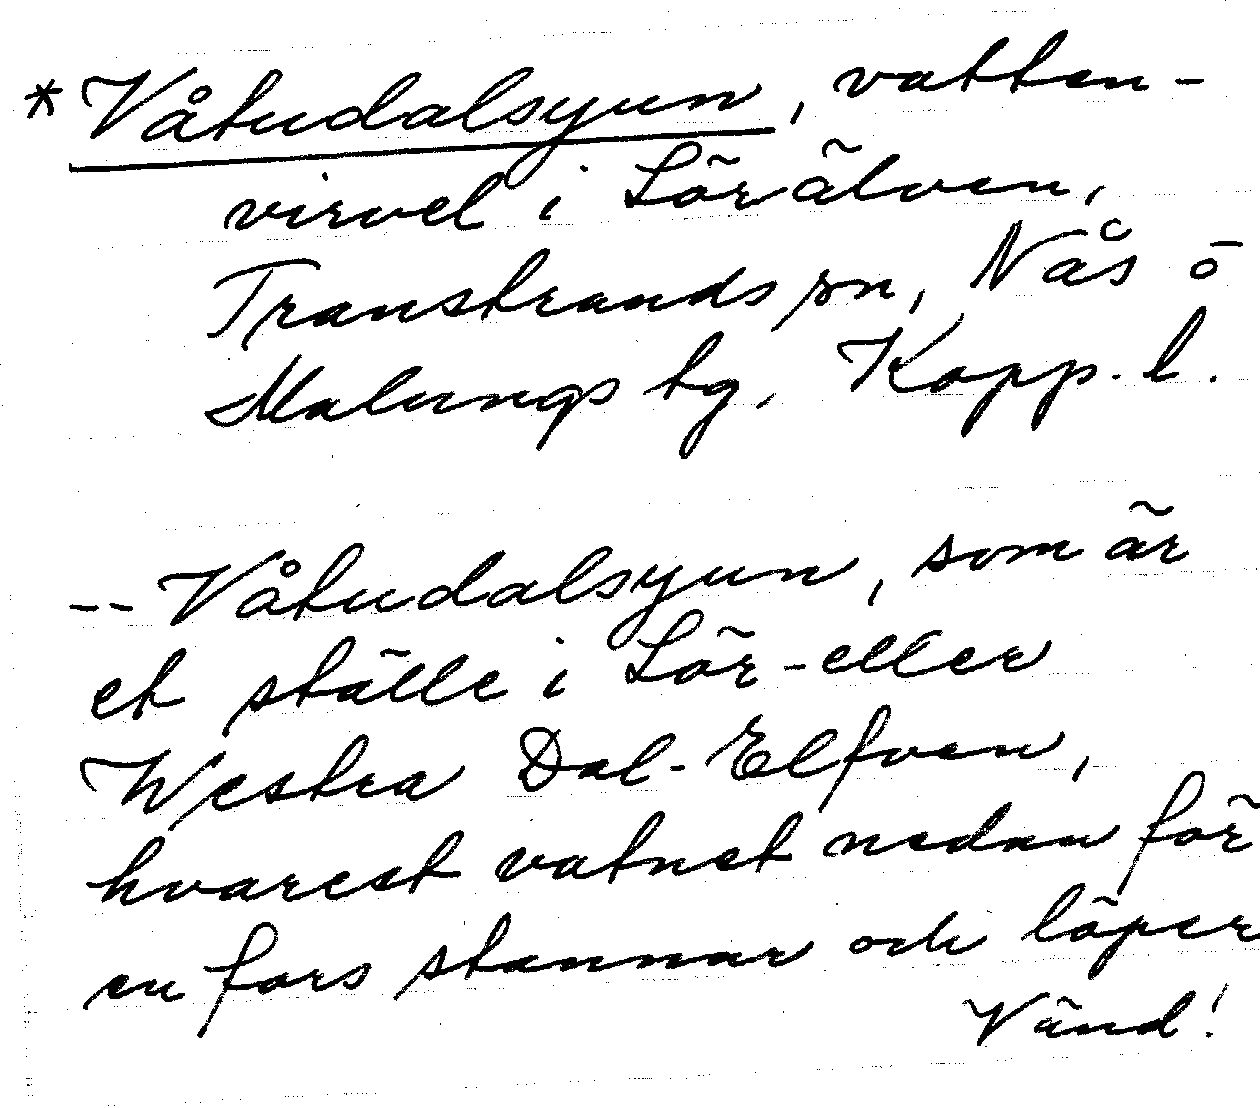 *Våtudalsyun, vatten-
virvel i Lörälven,
Transtrands sn, Nås o
Malungs tg, Kopp. l.
-- Våtudalsyun, som är
et ställe i Lör-eller
Westra Dal-Elfven,
hvarest vatnet nedanför
en fors stannar och löper
Vänd!